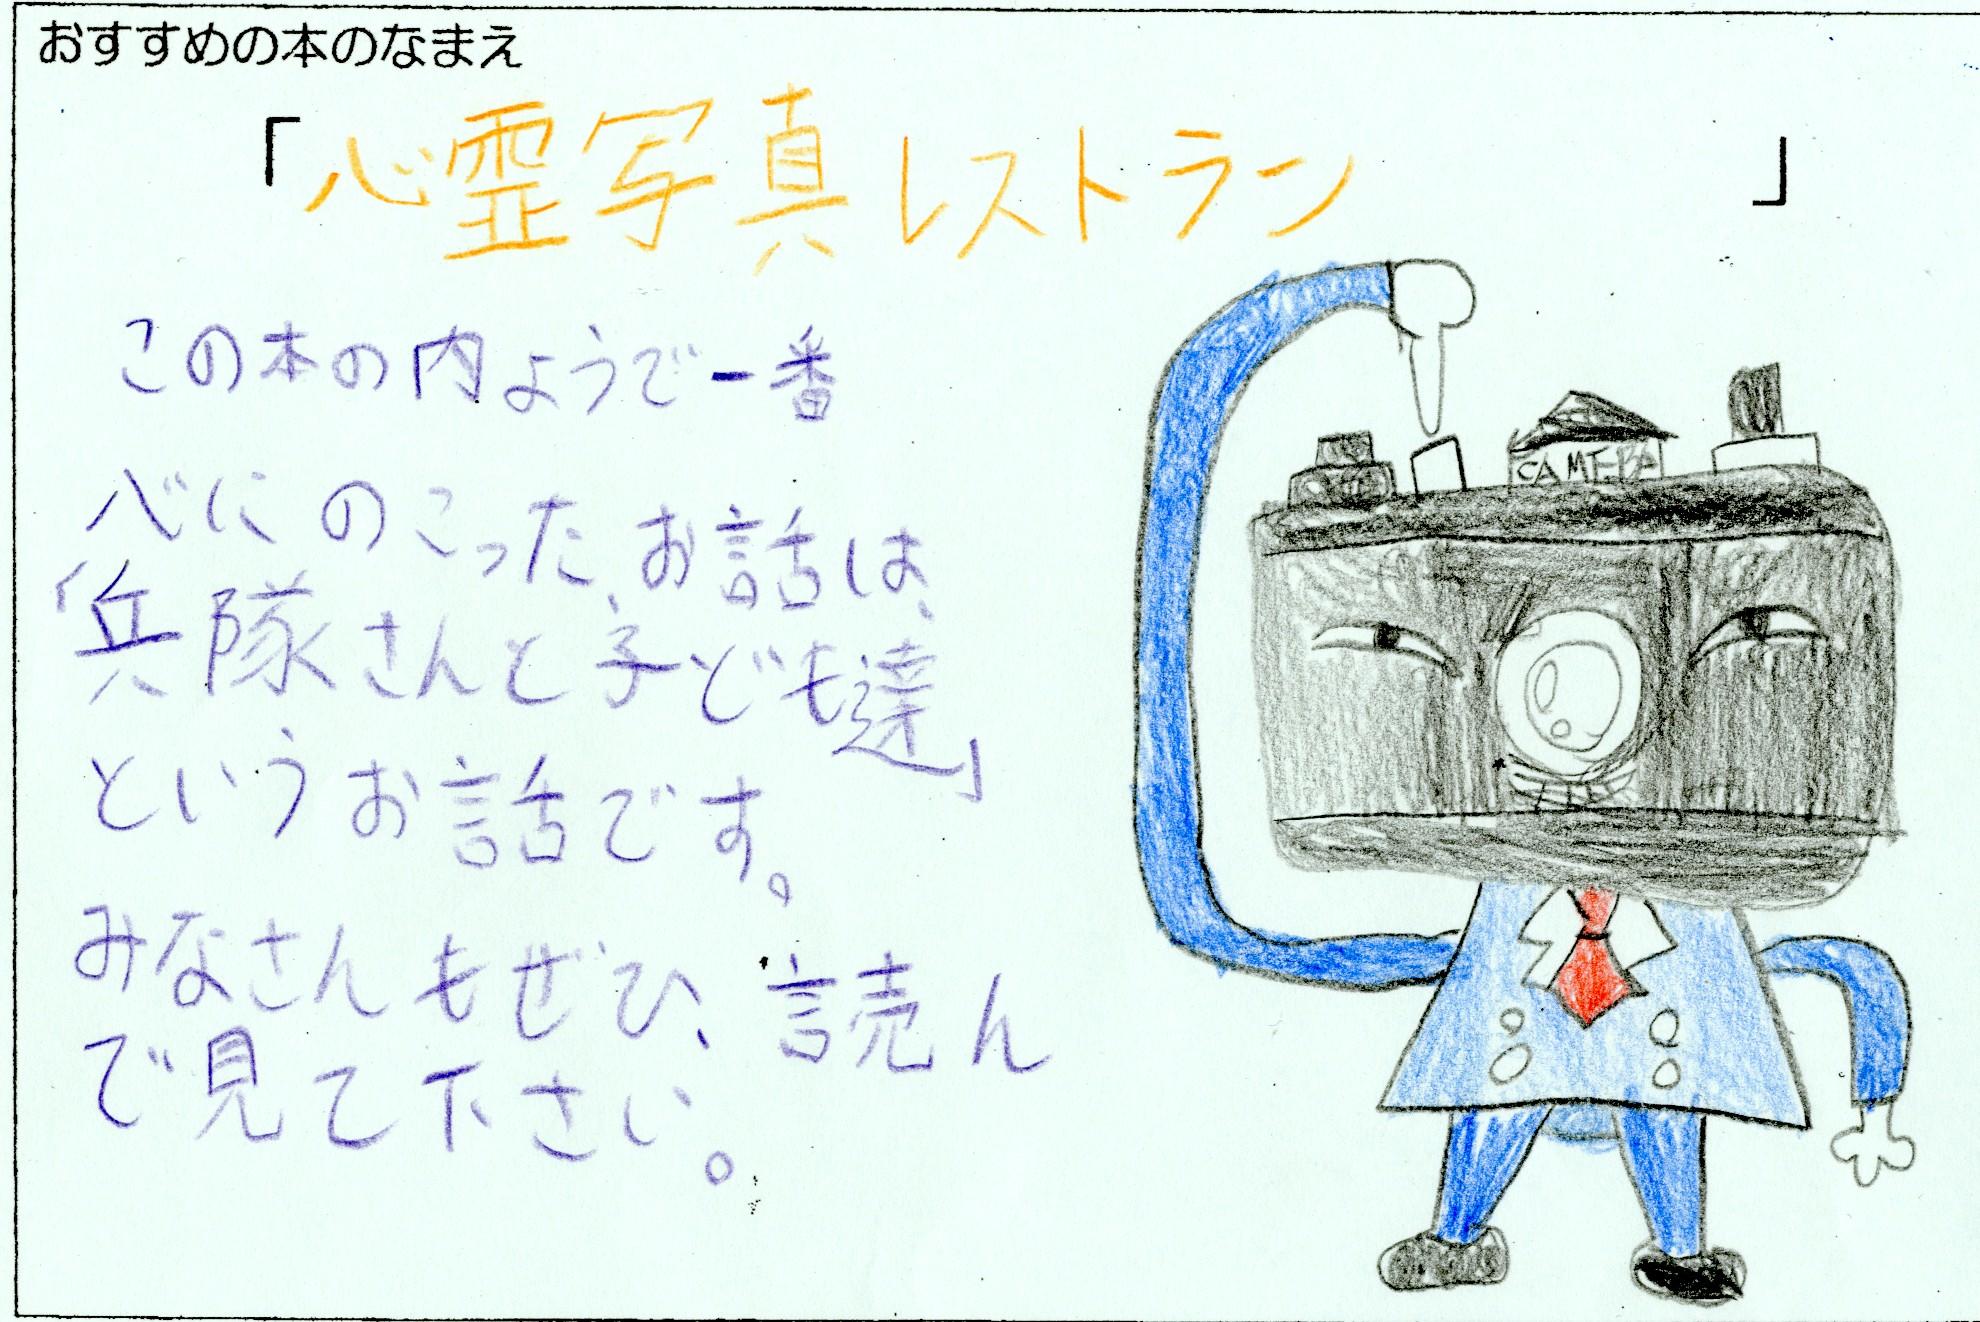 おすすめの本のなまえ
「心霊写真レストラン」
この本の内ようで一番
心にのこったお話は、
「兵隊さんと子ども達」
というお話です。
みなさんもぜひ、読ん
で見て下さい。
CAMERA